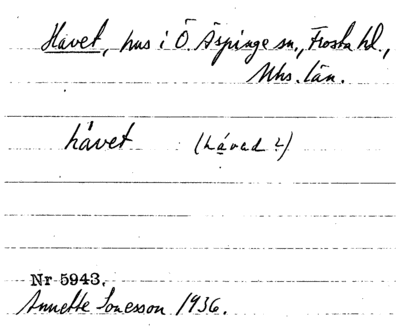 Håvet, hus i Ö. Äspinge sn., Frosta hd.,
Mhs. län.
håvet (håvad
Nr 5943.
Annette Jonesson 1936.